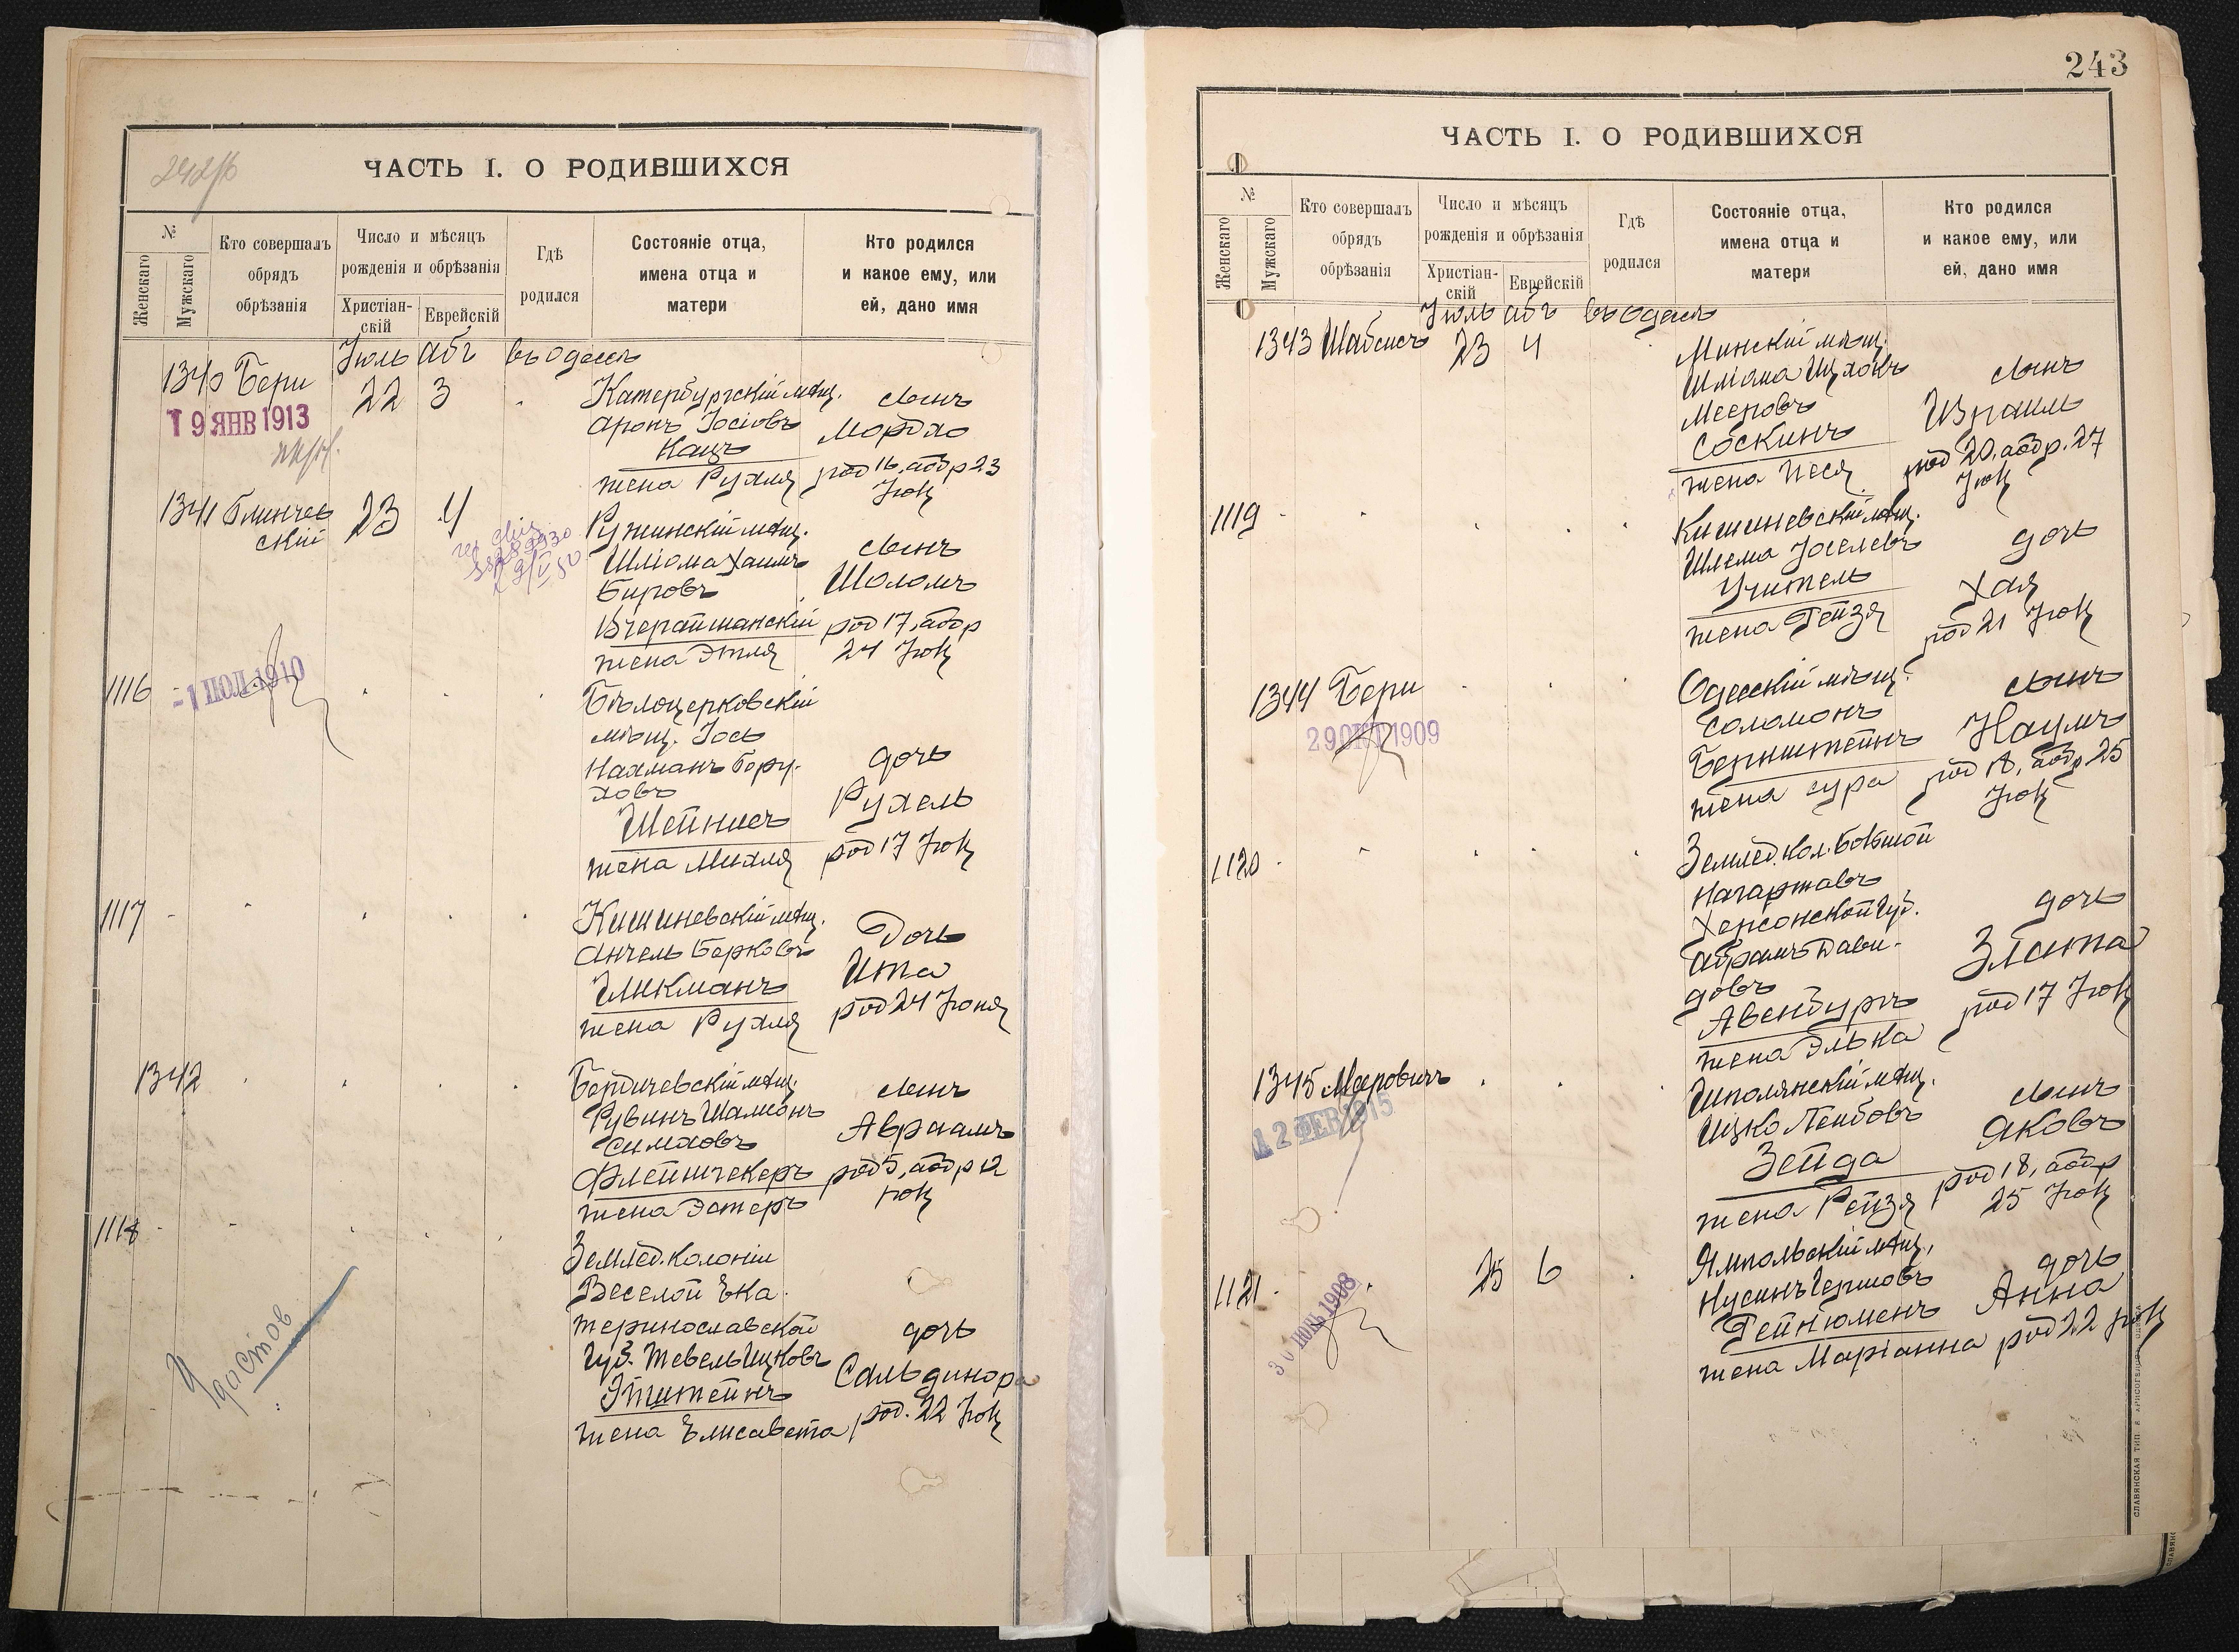 242/б
ЧАСТЬ I. О РОДИВШИХСЯ
№
Женскаго
Мужскаго
Кто совершалъ
обрядъ
обрѣзанія
Число и мѣсяцъ
рожденія и обрѣзанія
Христіан-
скій
Еврейскій
Гдѣ
родился
Состояніе отца,
имена отца и
матери
Кто родился
и какое ему, или
ей, дано имя
Іюль Абъ въ Одессѣ
1340 Бери 22 3
19 ЯНВ 1913
Катербургскій мѣщ.
Аронъ Іосіовъ
Кацъ
жена Рухля
сынъ
Мордхо
род 16, абдр 23
Іюл
1341 Блинчев
скій
23 4
Ружинскій мѣщ.
Шліома Хаимъ
Бировъ
Вчерайшанскій
жена Этля
сынъ
Шоломъ
род 17, абдр
24 Іюл
1116
-1 ИЮЛ 1910
Бѣлоцерковскій
мѣщ. Іось
Нахманъ Бору-
ховъ
Шейнисъ
жена Михля
дочь
Рухель
род 17 Іюл
1117
Кишиневскій мѣщ.
Анчель Берковъ
Гликманъ
жена Рухля
Дочь
Ита
род 24 Іюня
1342
Бердичевскій мѣщ.
Рувинъ Шамсонъ
Симховъ
Флейшчекеръ
жена Эстеръ
сынъ
Авраамъ
род 5, абдр 12
Іюл
1118
Землед. колоніи
Веселой Ека-
теринославской
Губ. Тевель Ицковъ
Этштейнъ
жена Елисавета
дочь
Сальдинора
род. 22 Іюл
243
ЧАСТЬ I. О РОДИВШИХСЯ
№
Женскаго
Мужскаго
Кто совершалъ
обрядъ
обрѣзанія
Число и мѣсяцъ
рожденія и обрѣзанія
Христіан-
скій
Еврейскій
Гдѣ
родился
Состояніе отца,
имена отца и
матери
Кто родился
и какое ему, или
ей, дано имя
Іюль Абъ въ Одессѣ
1343 Шабсисъ 23 4
Минскій мѣщ.
Шліома Ицхокъ
Мееровъ
Соскинъ
жена Песя
сынъ
Израиль
род 20, абдр. 27
Іюл
1119
Кишиневскій мѣщ.
Шлема Іоселевъ
Учитель
жена Гейзя
дочь
Хая
род 21 Іюл
1344 Бери
29 ОКТ 1909
Одесскій мѣщ.
Соломонъ
Бернштейнъ
жена Сура
сынъ
Наумъ
род 18, абдр 25
Іюл
1120
Землед. кол. Большой
Нагартавъ
Херсонской Губ.
Абрамъ Дави-
довъ
Авенбургъ
жена Элька
дочь
Злата
род 17 Іюл
1345 Меровичъ
12 ФЕВ 1915
Шполянскій мѣщ.
Ицко Лейбовъ
Зейда
жена Рейзя
сынъ
Яковъ
род 18, абдр
25 Іюл
1121
25 6
Ямпольскій мѣщ.
Нусинъ Гершовъ
Гейнюменъ
жена Маріанна
дочь
Анна
род 22 Іюл